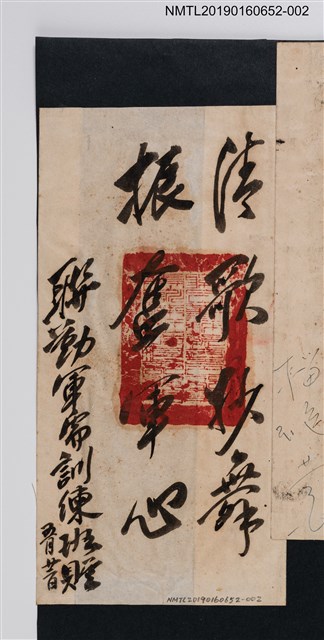 NMTL20190160652-002
清歌抄舞
振奮軍心
聯勤軍需訓練班贈
NMTL20190160652-002